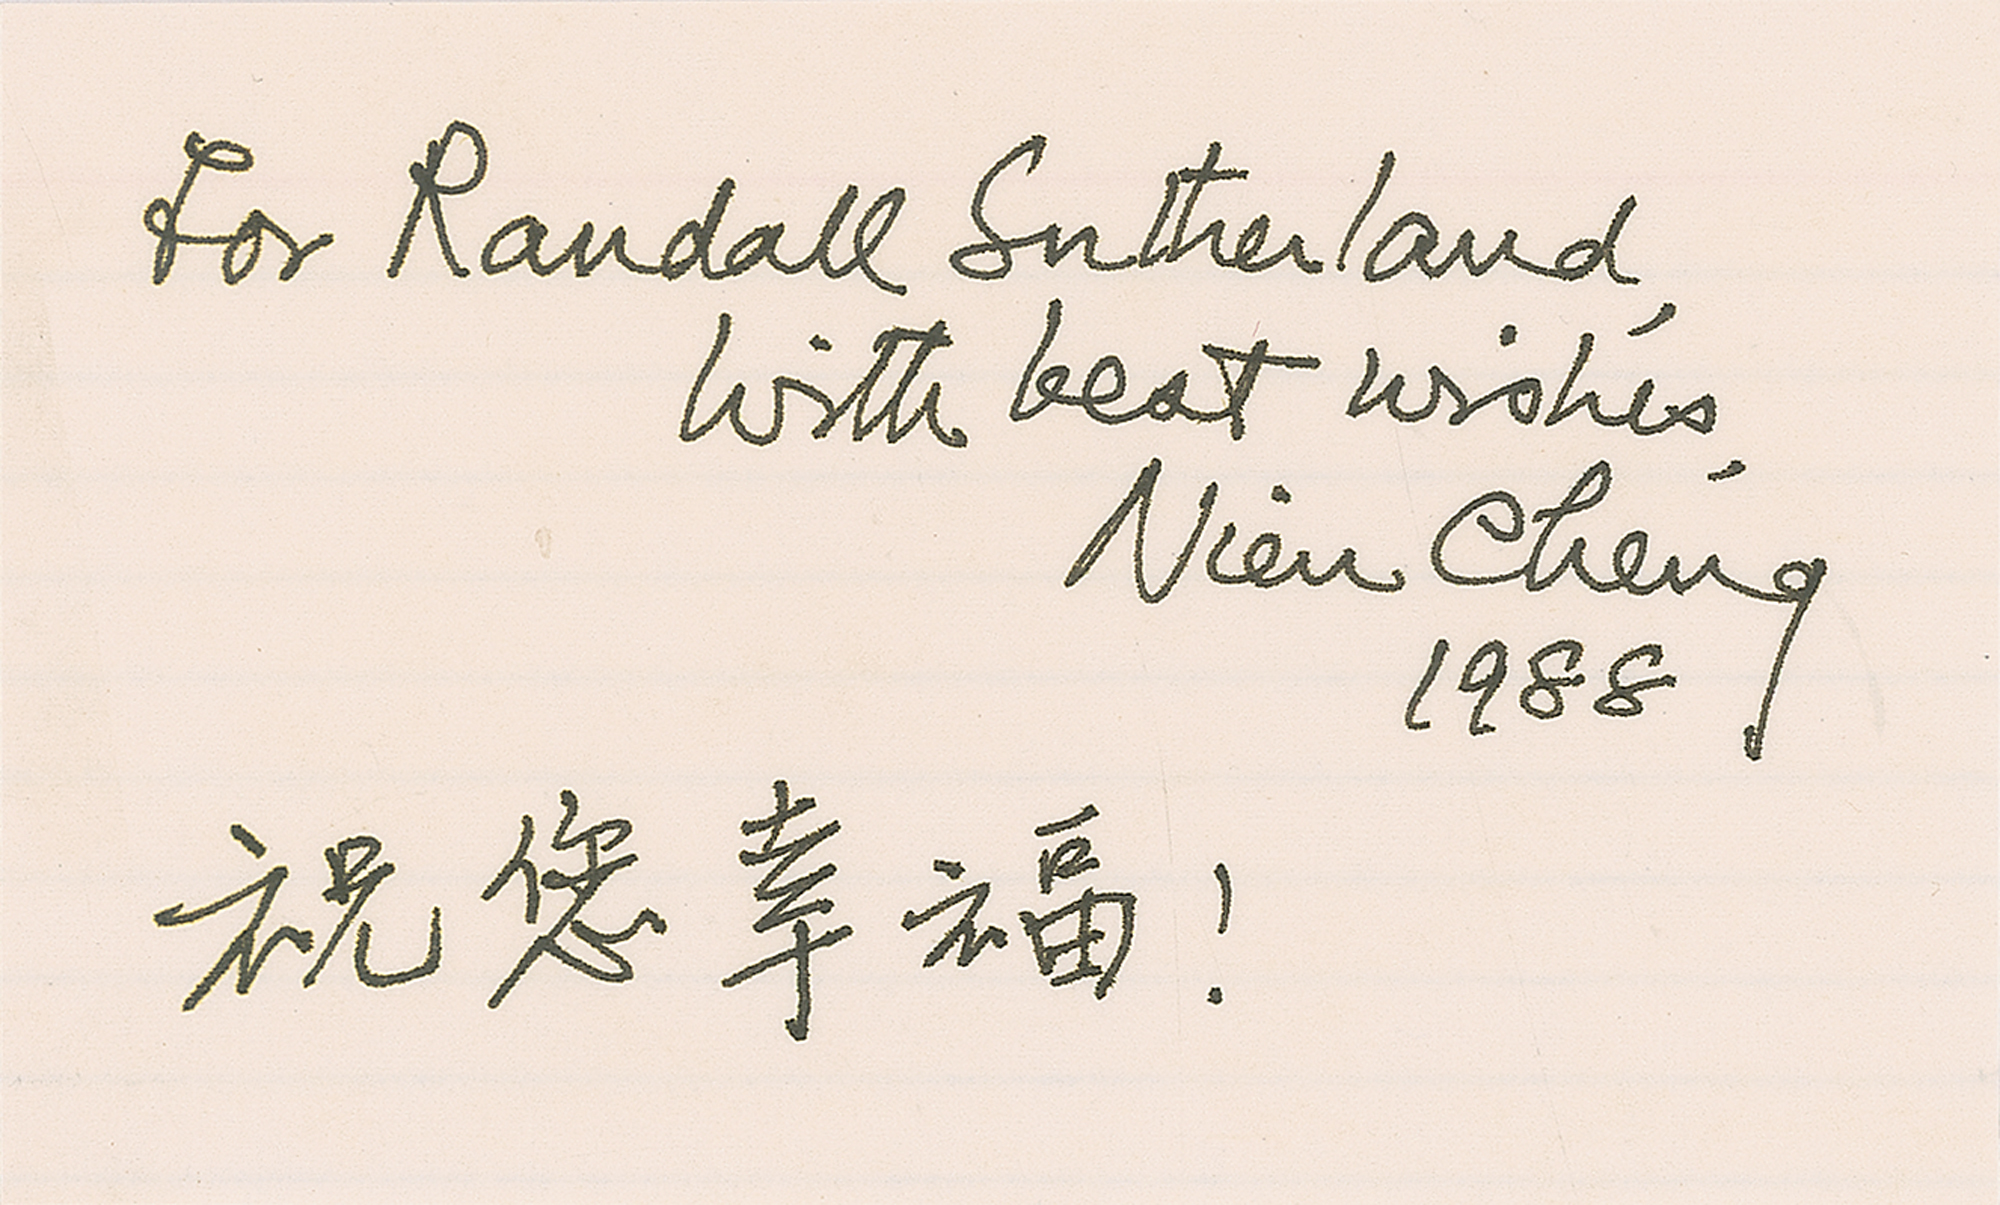 For Randall Sutherland,
With best wishes,
Nien Cheng
1988
祝您幸福!